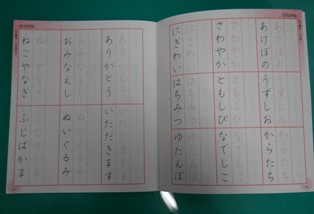 あけぼの
うずしお
からたち
さわやか
ともしび
なでしこ
にぎわい
はちみつ
ゆたんぽ
ありがとう
いただきます
おみなえし
ぬいぐるみ
ねこやなぎ
ふじばかま